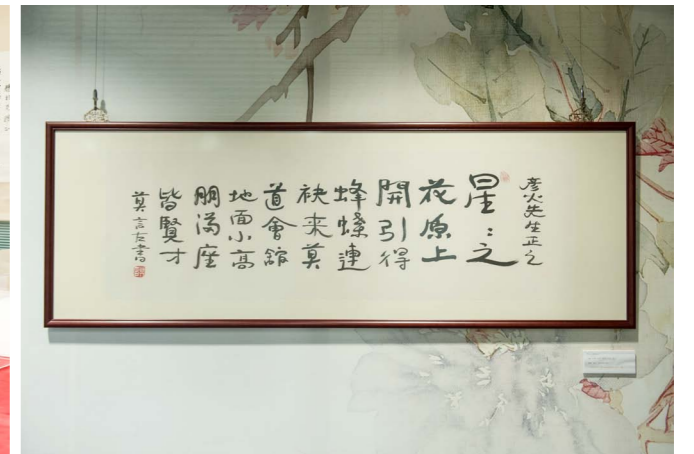 彦火先生正之
星:之
花原上
開引得
蜂蝶連
袂来莫
道會館
地面小高
朋满座
皆賢才
莫言左書